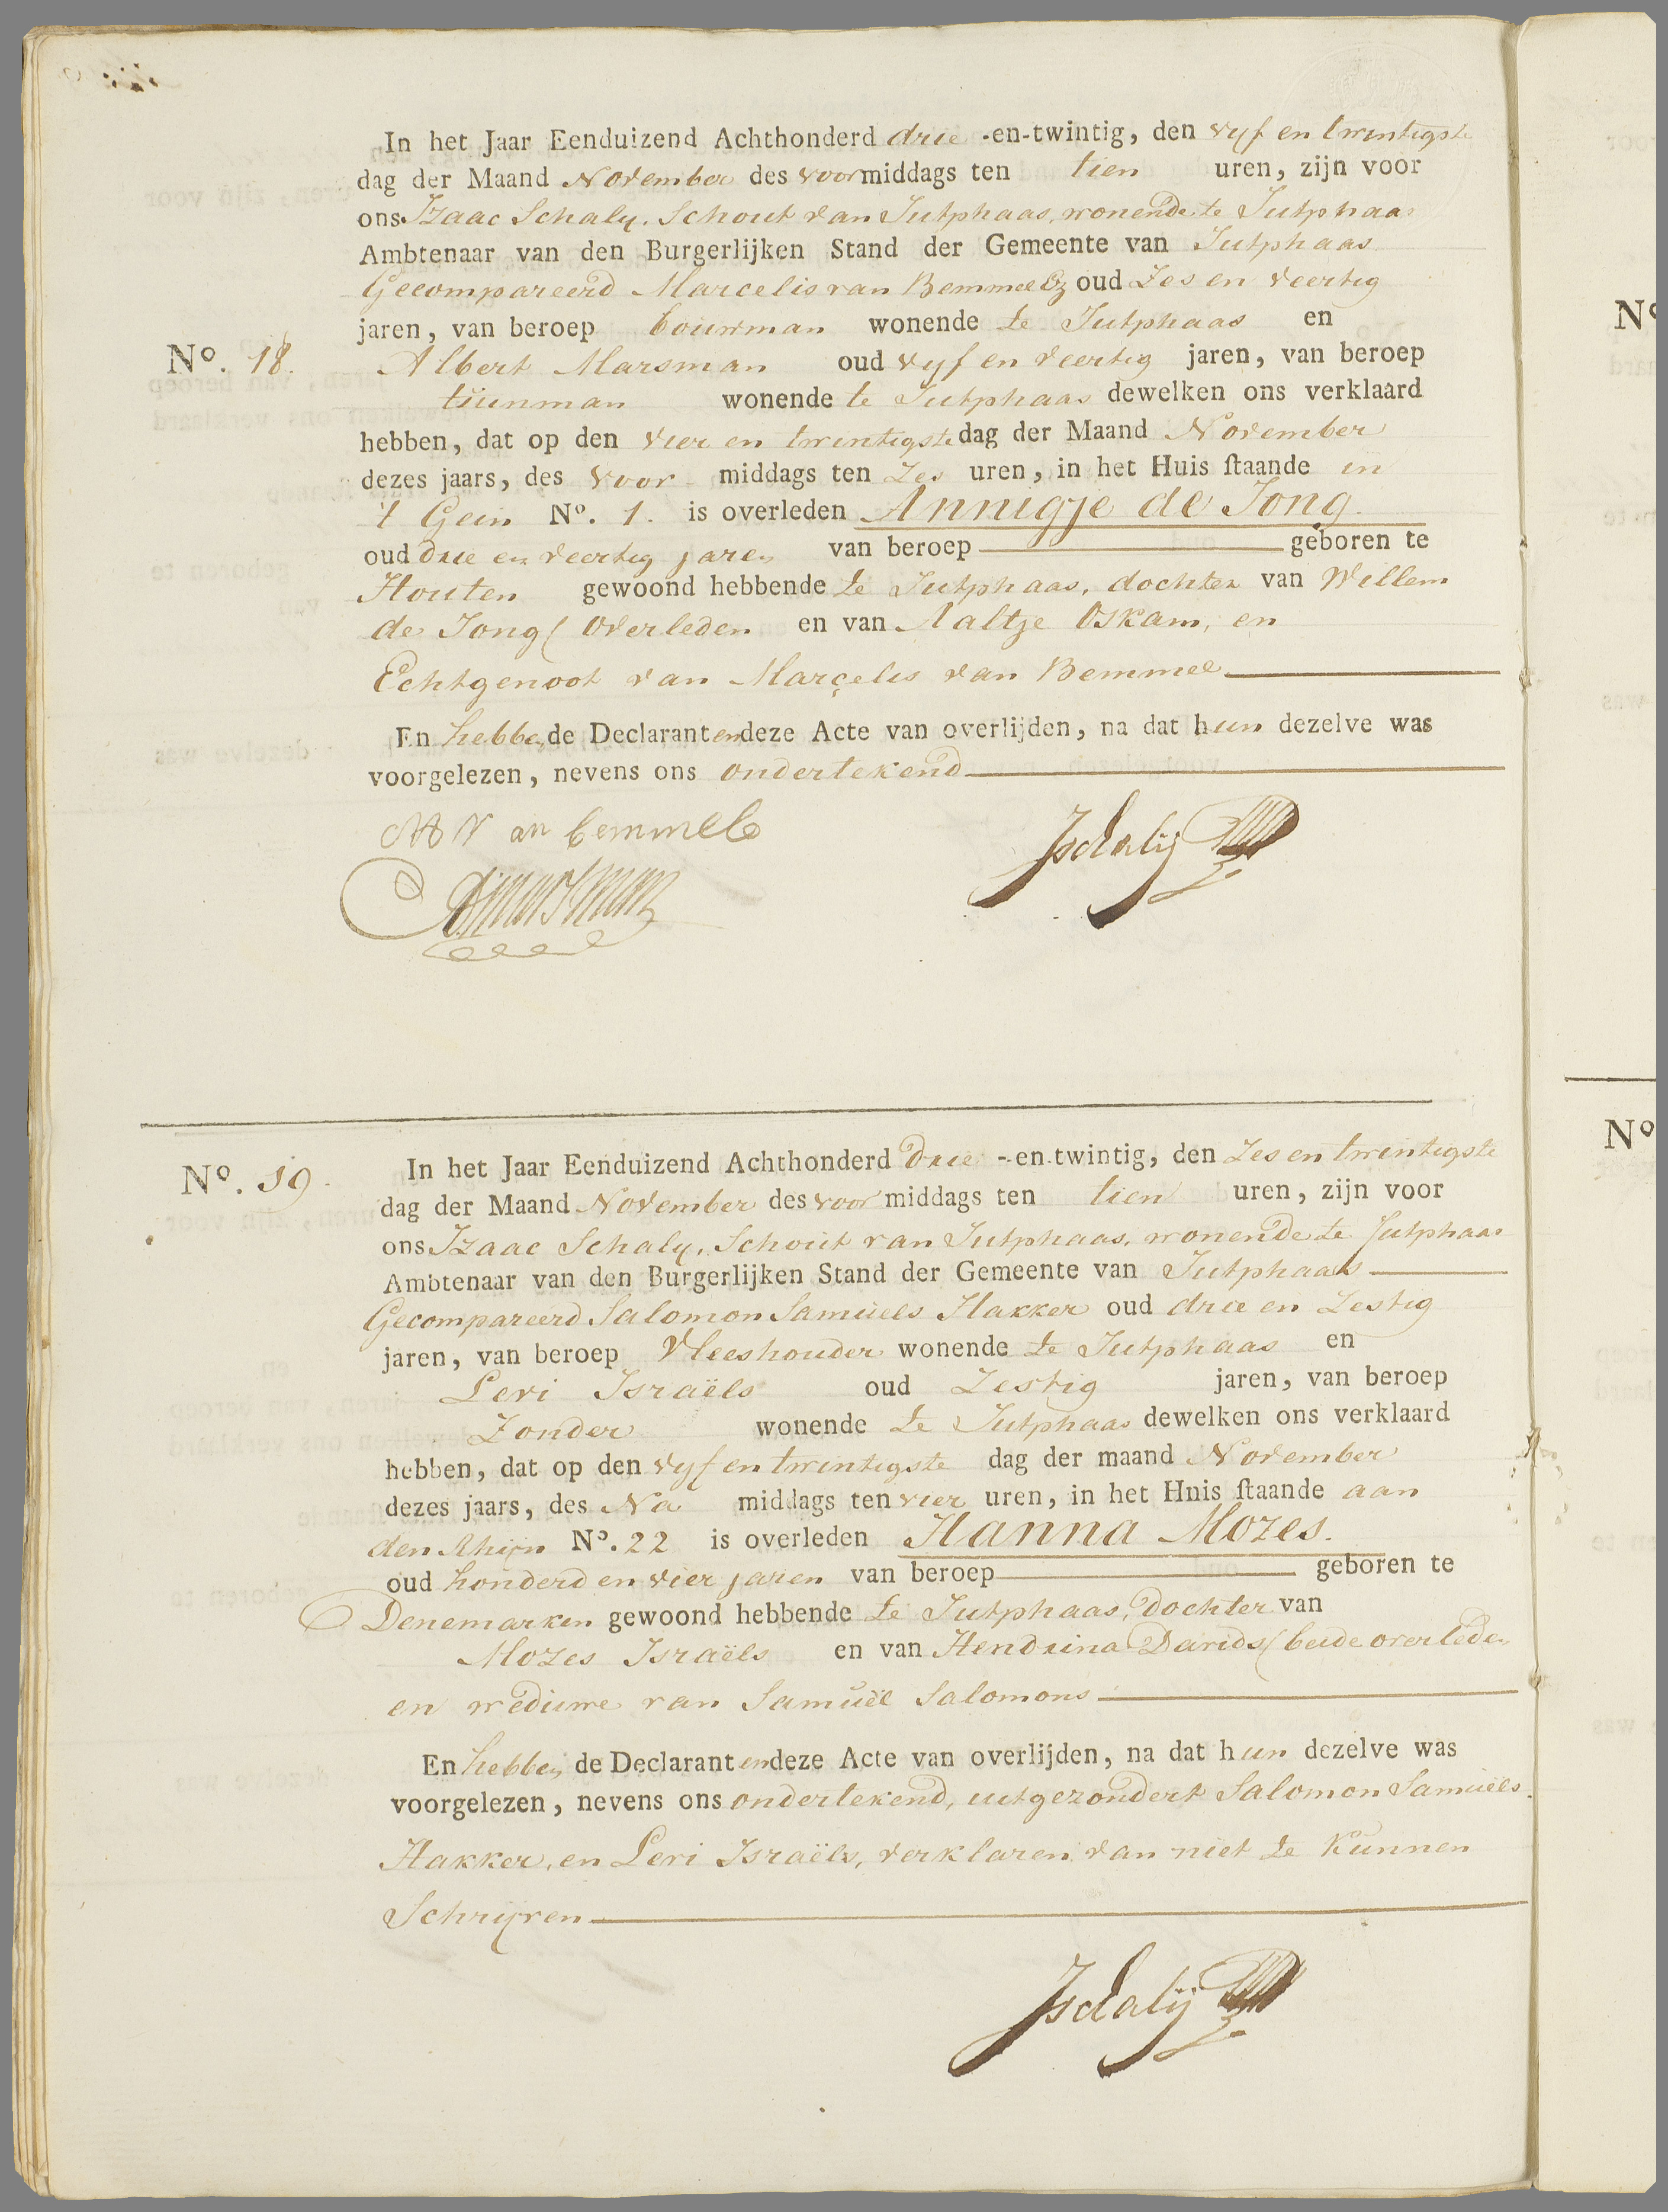 In het Jaar Eenduizend Achthonderd drie -en-twintig, den vyf en twintigste
dag der Maand November des voormiddags ten tien uren, zijn voor
ons Izaac Schaly, Schout van Jutphaas, wonende te Jutphaas
Ambtenaar van den Burgerlijken Stand der Gemeente van Jutphaas
Gecompareerd Marcelis van Bemmel oud Zes en veertig
jaren, van beroep bouwman wonende te Jutphaas en
No. 18. Albert Marsman oud vyf en veertig jaren, van beroep
tuinman wonende te Jutphaas dewelken ons verklaard
hebben, dat op den vier en twintigste dag der Maand November
dezes jaars, des voor middags ten Zes uren, in het Huis staande in
't Gein No. 1. is overleden Annigje de Jong.
oud Drie en veertig jaren van beroep geboren te
Houten gewoond hebbende te Jutphaas, dochter van Willem
de Jong ( overleden en van Aaltje Oskam, en
Echtgenoot van Marcelis van Bemmel
En hebben de Declaranten deze Acte van overlijden, na dat hun dezelve was
voorgelezen, nevens ons ondertekend
M van bemmel
Ischalij
AMarsman
No. 19. In het Jaar Eenduizend Achthonderd Drie -en-twintig, den Zes en twintigste
dag der Maand November des voor middags ten tien uren, zijn voor
ons Izaac Schaly, Schout van Jutphaas, wonende te Jutphaas
Ambtenaar van den Burgerlijken Stand der Gemeente van Jutphaas
Gecompareerd Salomon Samuels Hakker oud drie en Zestig
jaren, van beroep Vleeshouder wonende te Jutphaas en
Levi Israëls oud Zestig jaren, van beroep
Zonder wonende te Jutphaas dewelken ons verklaard
hebben, dat op den vyf en twintigste dag der maand November
dezes jaars, des Na middags ten vier uren, in het Huis staande aan
den Rhijn No. 22 is overleden Hanna Mozes.
oud honderd en vier jaren van beroep geboren te
Denemarken gewoond hebbende te Jutphaas, Dochter van
Mozes Israëls en van Hendrina Davids ( beide overleden
en weduwe van Samuël Salomons
En hebben de Declaranten deze Acte van overlijden, na dat hun dezelve was
voorgelezen, nevens ons ondertekend, uitgezondert Salomon Samuëls
Hakker, en Levi Israëls, verklaren van niet te Kunnen
Schrijven
Ischalij
No
No